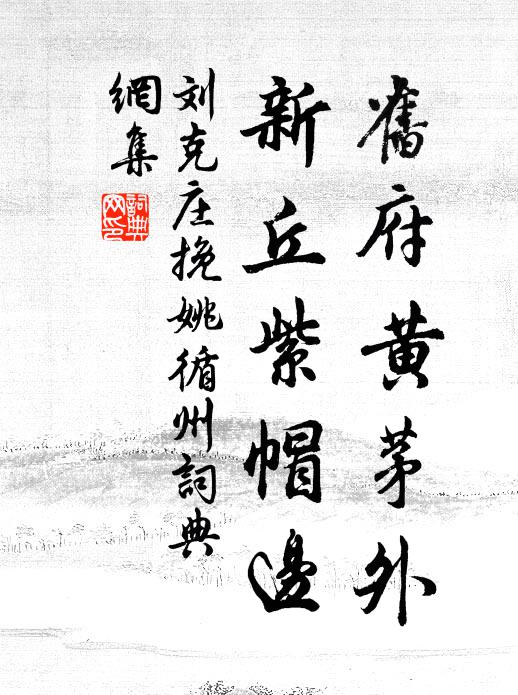 舊府黄茅外
新丘紫帽邊
刘克庄挽姚循州詞典
網集
詞典
网印